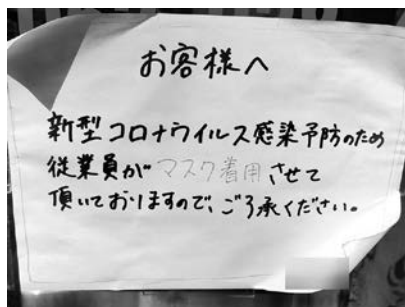 お客様へ
新型コロナウイルス感染予防のため
従業員がマスク着用させて
頂いておりますので、ご了承ください。